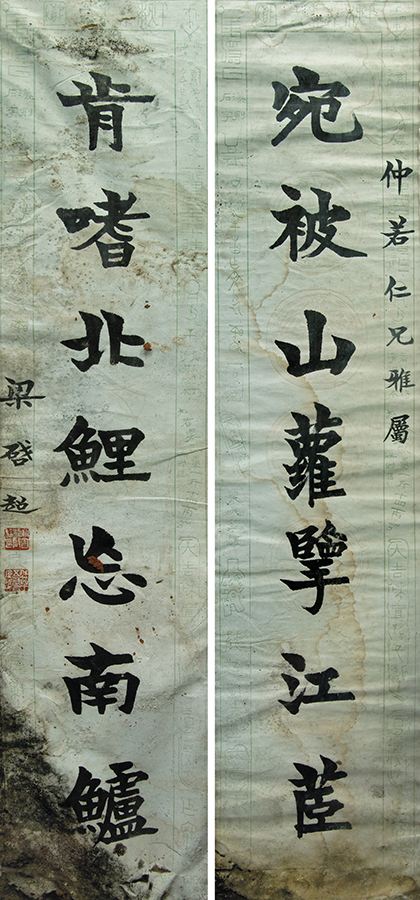 仲若仁兄雅屬
宛被山蘿擥江茝
肯嗜北鯉忘南鱸
梁啓超